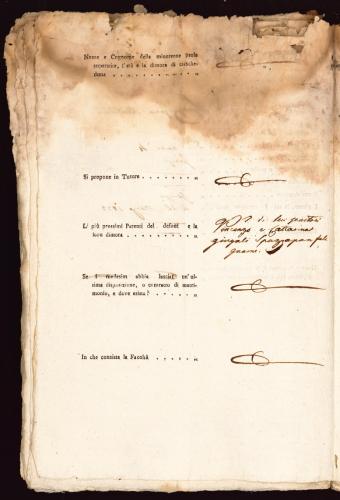 Nome e Cognome della minorenne prole
superstite, l'età e la dimora di ciasche-
duna . . . . . . . . . . . „
Si propone in Tutore . . . . . . . „
L' più prossimi Parenti del defont e la
loro dimora . . . . . . . . . . „
di lui genitori
Vincenzo e Catterina
giugali
Se i medesimi abbia lasciat un'ul-
tima disposizione, o contratto di matri-
monio, e dove esista? . . . . . . . „
In che consista la Facoltà . . . . . . „